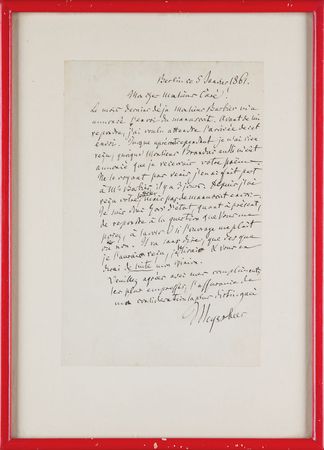 Berlin ce 5 Janvier 1861.
Mon cher Monsieur Carré!
Le mois dernier déja Monsieur Barbier m'a
annoncé l'envoi du manuscrit. Avant de lui
repondre, j'ai voulu attendre l'arrivée de cet
envoi. Jusque aprésent cependant je n'ai rien
reçu, quoique Monsieur Brandus aussi m'ait
annoncé que je recevrais votre poëme.
Ne le voyant pas venir j'en ai fait part
à Mr Barbier il y a 3 jours. Depuis j'ai
reçu votre mais pas de manuscrit encore.
Je suis donc hors d'état quant à présent,
de repondre à la question que vous me
posez, à savoir si l'ouvrage me plait
ou non. Il va sans dire, que dès que
je l'aurais reçu, je & vous en
dirai de suite mon opinion.
Veuillez agréer avec mes compliments
les plus empressés, l'assurance de
ma consideration la plus distinguée
Meyerbeer